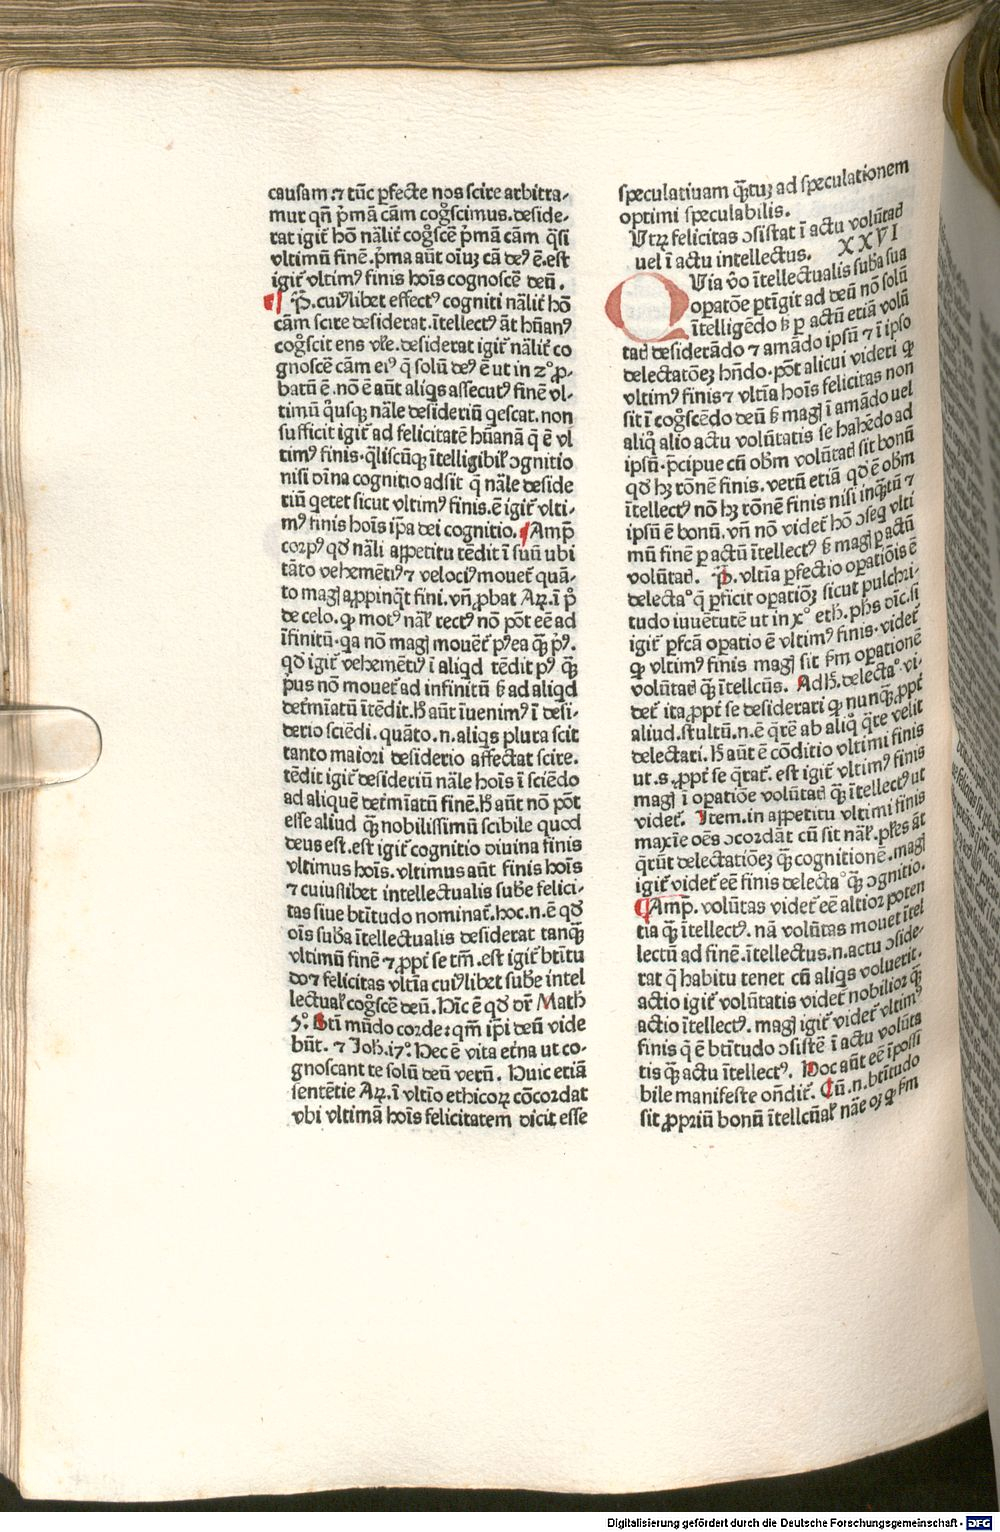 causam:⁊ tūc ꝑfecte nos scire arbitra⸗
mur qn̄ pͥmā cām cogͦscimus.deside⸗
rat igit̄ hō nālit̄ cogͦscē pͥmā cām qͣsi
vltimū finē.pͥma aūt oīuꝫ cā deꝰ ē.est
igit̄ vltimꝰ finis hoīs cognoscē deū.
¶ P̄. cuiꝰlibet effectꝰ cogniti nālit̄ hō
cām scire desiderat.ītellectꝰ āt hūanꝰ
cogͦscit ens vl̄e.desiderat igit̄ nālit̄ co
gnoscē cām eiꝰ qͥ solū deꝰ ē ut in 2° ꝓ⸗
batū ē.nō ē aūt aliqͥs assecutꝰ finē vl⸗
timū qͦusqꝫ nāle desideriū qͥescat.non
sufficit igit̄ ad felicitatē hūanā q̄ ē vl
timꝰ finis.qͣliscūqꝫ ītelligibil̄ ↄgnitio
nisi dīna cognitio adsit q̄ nāle deside
riū qͥetet sicut vltimꝰ finis.ē igit̄ vlti⸗
mꝰ finis hoīs ip̄a dei cognitio. ¶Amp̄
corpꝰ qd̄ nāli appetitu tēdit ī suū ubi
tāto vehemētiꝰ ⁊ velociꝰ mouet̄ quā⸗
to magꝭ appinqͣt fini.vn̄ ꝓbat Aꝝ.ī pͥ
de celo.ꝙ motꝰ nāl̄ rectꝰ nō pōt eē ad
īfinitū.qa nō magꝭ mouēt̄ pꝰea qꝫ pͥꝰ.
qd̄ igit̄ vehemētiꝰ ī aliqd̄ tēdit pꝰ qꝫ
pͥus nō mouet̄ ad infinitū sꝫ ad aliqd̄
det̄miatū ītēdit.H̄ aūt īuenimꝰ ī desi⸗
derio sciēdi.quāto.n.aliqͥs plura scit
tanto maiori desiderio affectat scire.
tēdit igit̄ desideriū nāle hoīs ī sciēdo
ad aliquē det̄mīatū finē.H̄ aūt nō pōt
esse aliud qꝫ nobilissimū scibile quod
deus est.est igit̄ cognitio diuina finis
vltimus hoīs.vltimus aūt finis hoīs
⁊ cuiuslibet intellectualis sub̄e felici⸗
tas siue bt̄itudo nominat̄.hoc.n.ē qd̄
oīs sub̄a ītellectualis desiderat tanqꝫ
vltimū finē ⁊ ꝓpt̄ se tm̄.est igit̄ bt̄itu
do ⁊ felicitas vltīa cuiꝰlibet sub̄e intel
lectual̄ cogͦscē deū.Hīc ē qd̄ dr̄ Math
5°. Bt̄i mūdo corde:qm̄ ip̄i deū vide
būt. ⁊ Joh.17°.Hec ē vita et̄na ut co⸗
gnoscant te solū deū verū. Huic etiā
sentētie Aꝝ.ī vltīo ethicoꝝ cōcordat
vbi vltimā hoīs felicitatem dicit esse
speculatiuam qͣꝫtuꝫ ad speculationem
optimi speculabilis.
Utꝝ felicitas ↄsistat ī actu volūtatꝭ
uel ī actu intellectus. XXVI
QUia v̄o ītellectualis sub̄a sua
oꝑatōe ꝑtīgit ad deū nō solū
ītelligēdo sꝫ ꝑ actū etiā volū
tatꝭ desiderādo ⁊ amādo ipsū ⁊ ī ipso
delectatōeꝫ hn̄do.pōt alicui videri ꝙ
vltimꝰ finis ⁊ vltīa hoīs felicitas non
sit ī cogͦscēdo deū sꝫ magꝭ ī amādo uel
aliqͦ alio actu volūtatis se habēdo ad
ipsū.p̄cipue cū ob̄m volūtatꝭ sit bonū
qd̄ hꝫ rōnē finis.verū etiā qd̄ ē ob̄m
ītellectꝰ nō hꝫ rōnē finis nisi inqͣtū ⁊
ipsū ē bonū.vn̄ nō videt̄ hō ↄseq̄ vlti
mū finē ꝑ actū ītellectꝰ sꝫ magꝭ ꝑ actū
volūtatꝭ. P̄. vltīa ꝑfectio oꝑatiōis ē
delectaͦ q̄ ꝑficit oꝑatiōꝫ sicut pulchri⸗
tudo iuuētutē ut in x° eth̄.ph̄s dīc.si
igit̄ ꝑfcā oꝑatio ē vltimꝰ finis.videt̄
ꝙ vltimꝰ finis magꝭ sit ẜm oꝑationē
volūtatꝭ qꝫ ītellcūs. Adh̄.delectaͦ vi⸗
det̄ ita ꝓpt̄ se desiderari ꝙ nunqꝫ ꝓpt̄
aliud.stultū.n.ē qͣrē ab aliqͦ qͣre velit
delectari.H̄ aūt ē cōditio vltimi finis
ut.s.ꝓpt̄ se qͣrat̄. est igit̄ vltimꝰ finis
magꝭ ī oꝑatiōe volūtatꝭ qꝫ ītellectꝰ ut
videt̄. Item.in appetitu vltimi finis
maxīe oēs ↄcordāt cū sit nāl̄.pl̄es āt
qͣrūt delectatiōeꝫ qꝫ cognitionē.magꝭ
igit̄ videt̄ eē finis delectaͦ qꝫ ↄgnitio.
¶Amp̄. volūtas videt̄ eē altior poten
tia qꝫ ītellectꝰ. nā volūtas mouet ītel
lectū ad finē.ītellectus.n.actu ↄside⸗
rat q̄ habitu tenet cū aliqͥs voluerit.
actio igit̄ volūtatis videt̄ nobilior qꝫ
actio ītellectꝰ. magꝭ igit̄ videt̄ vltimꝰ
finis q̄ ē bt̄itudo ↄsistē ī actu volūta
tis qꝫ actu ītellectꝰ. Hoc aūt eē īpossi
bile manifeste on̄dit̄. Cū.n.bt̄itudo
sit ꝓpriū bonū ītellcūal̄ nāe oꝫ ꝙ ẜm
Digitalisierung gefördert durch die Deutsche Forschungsgemeinschaft - DFG